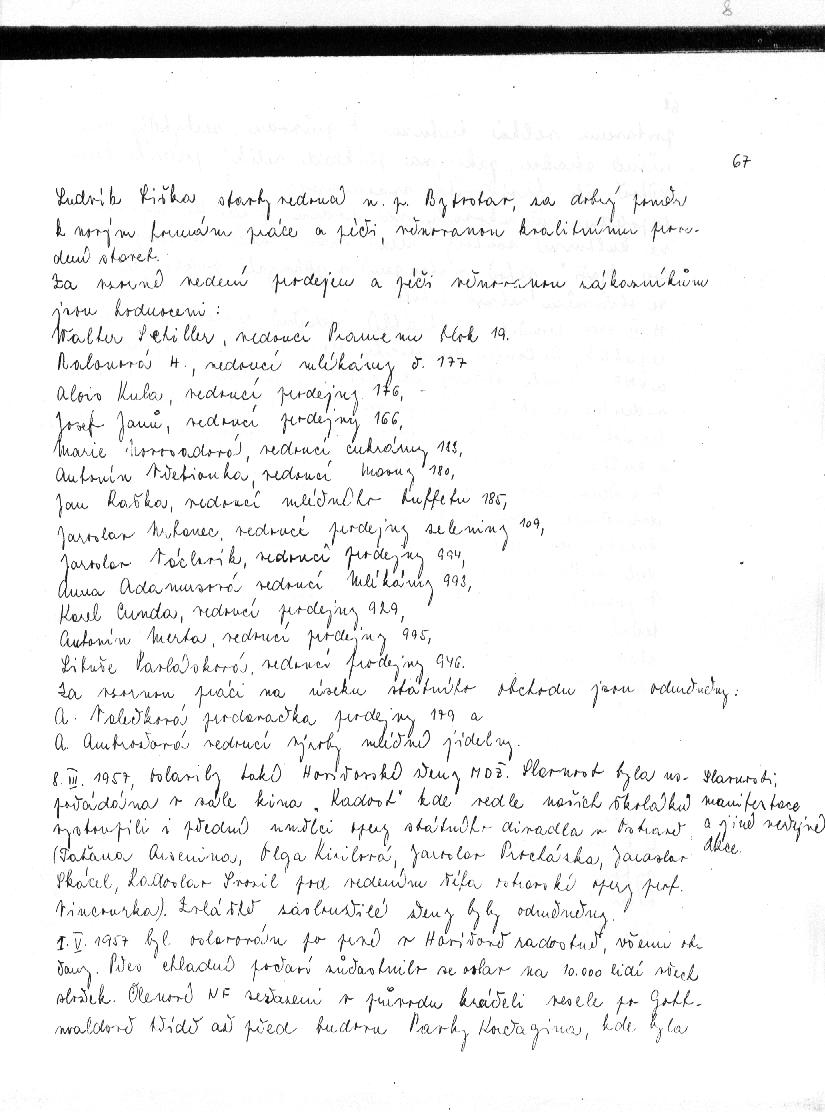 8
67
Ludvík Liška stavbyvedoucí n. p. Bytostav, za dobrý poměr
k novým formám práce a péči, věnovanou kvalitnímu prove-
dení staveb.
Za vzorné vedení prodejen a péči věnovanou zákazníkům
jsou hodnoceni:
Walter Schiller, vedoucí Pramenu blok 19.
H., vedoucí mlékárny č. 177
Alois Kuba, vedoucí prodejny 176,
Josef Janů, vedoucí prodejny 166,
Marie Novosadová, vedoucí cukrárny 183,
Antonín Všetionka, vedoucí Masny 180,
Jan Raška, vedoucí mléčného buffetu 185,
Jaroslav Mrkanec, vedoucí prodejny zeleniny 109,
Jaroslav Václavík, vedoucí prodejny 994,
Anna Adamusová vedoucí Mlékárny 993,
Karel Cunda, vedoucí prodejny 929,
Antonín Merta, vedoucí prodejny 995,
Libuše Pavlásková, vedoucí prodejny 946.
Za vzornou práci na úseku státního obchodu jsou odměněny:
A. Volečková prodavačka prodejny 179 a
A. Ambrožová vedoucí výroby mléčné jídelny.
8. III. 1957, oslavily také Havířovské ženy MDŽ. Slavnost byla us-
pořádána v sále kina "Radost" kde vedle našich školáků
vystoupili i přední umělci opery státního divadla v Ostravě
(Taťána Arsenina, Olga Kirilová, Jaroslav Procházka, Jaroslav
Skácel, Ladoslav Srosil pod vedením šéfa ostravské opery prof.
Vincourka). Zvláště zasloužilé ženy byly odměněny.
Slavnosti,
manifestace
a jiné veřejné
akce.
1. V. 1957 byl oslavován po prvé v Havířově radostně, všemi ob-
čany. Přes chladné počasí zúčastnilo se oslav na 10.000 lidí všech
složek. Členové NF seřazeni v průvodu kráčeli vesele po Gott-
waldově třídě až před budovu Parky Korčagina, kde byla